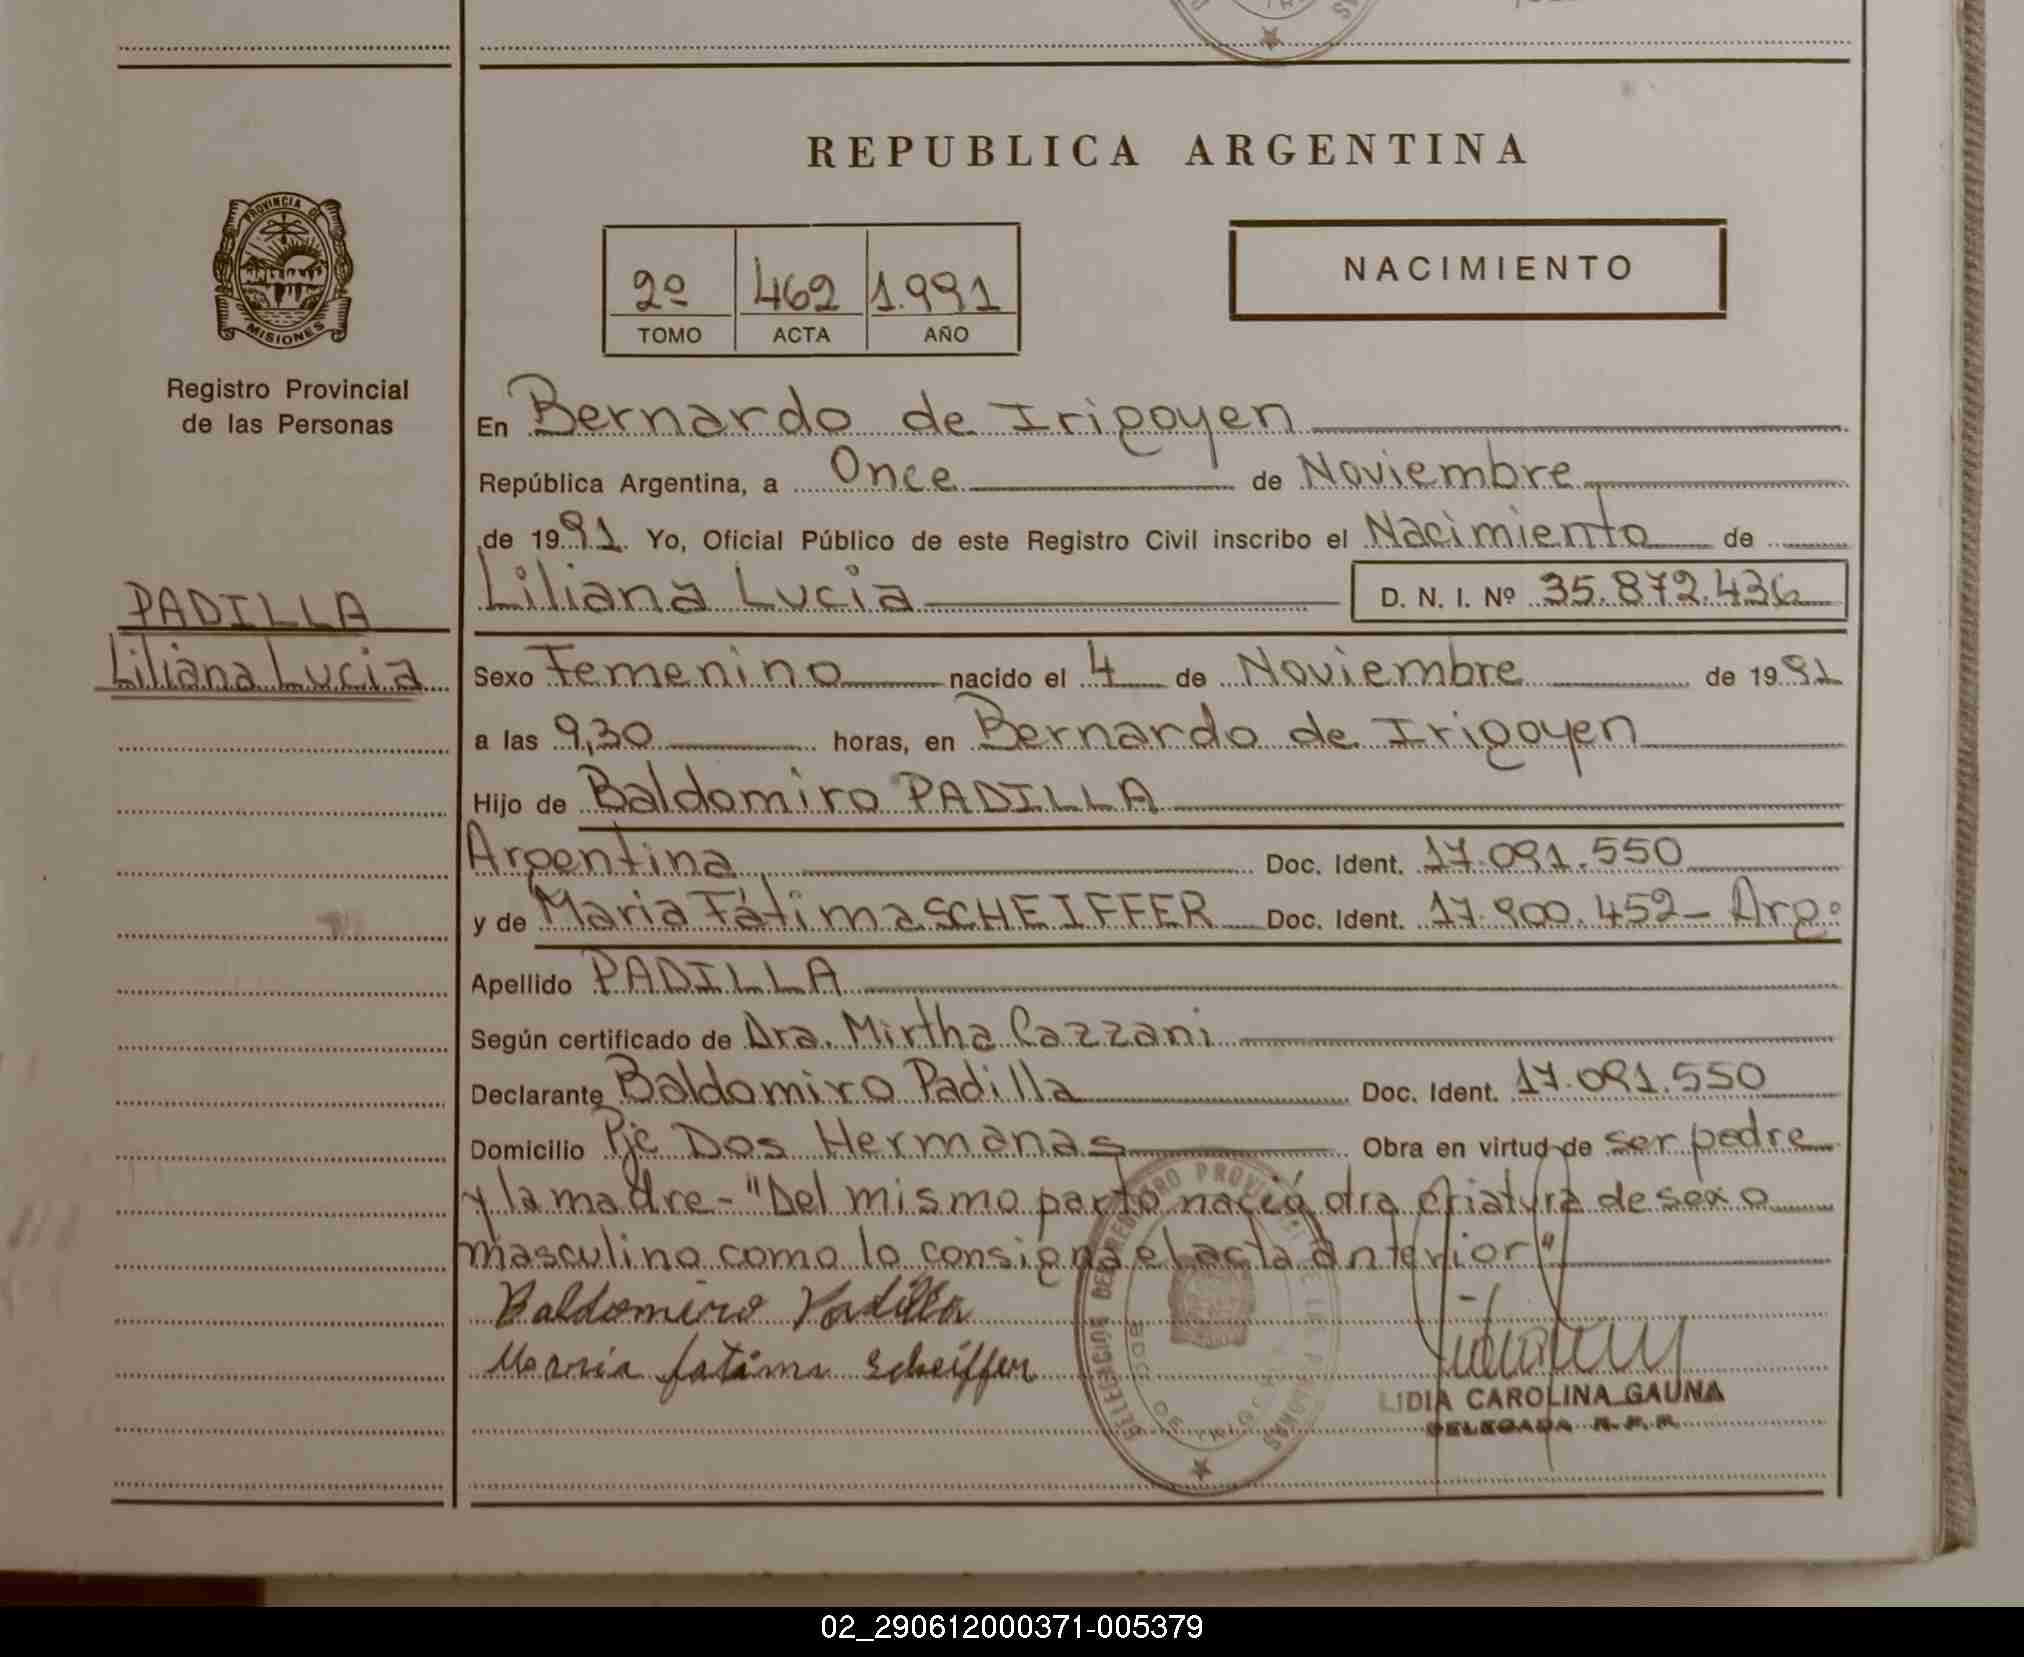 REPUBLICA ARGENTINA
PROVINCIA DE
MISIONES
Registro Provincial
de las Personas
2º 462 1.991
TOMO ACTA AÑO
NACIMIENTO
PADILLA
Liliana Lucia
En Bernardo de Irigoyen
República Argentina, a Once de Noviembre
de 1991. Yo, Oficial Público de este Registro Civil inscribo el Nacimiento de
Liliana Lucia D. N. I. Nº 35.872.436
Sexo Femenino nacido el 4 de Noviembre de 1991
a las 9,30 horas, en Bernardo de Irigoyen
Hijo de Baldomiro PADILLA
Argentina Doc. Ident. 17.091.550
y de Maria Fátima SCHEIFFER Doc. Ident. 17.900.452- Arg.
Apellido PADILLA
Según certificado de Dra. Mirtha Cazzani
Declarante Baldomiro Padilla Doc. Ident. 17.091.550
Domicilio Pje Dos Hermanas Obra en virtud de ser padre
y la madre- "Del mismo parto nació otra criatura de sexo
masculino como lo consigna el acta anterior"
Baldomiro Padilla
Maria fatima Scheiffer
LIDIA CAROLINA GAUNA
DELEGADA R. P. P.
02_290612000371-005379